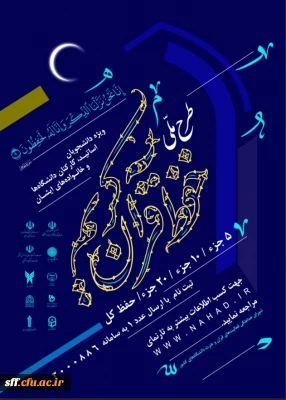 إِنَّا نَحْنُ نَزَّلْنَا الذِّكْرَ وَإِنَّا لَهُ لَحَافِظُونَ
طرح ملی
حفظ قرآن کریم
ویژه دانشجویان
اساتید، کارکنان دانشگاه‌ها
و خانواده‌های ایشان
۵ جزء / ۱۰ جزء / ۲۰ جزء / حفظ کل
ثبت نام با ارسال عدد ۱ به سامانه
جهت کسب اطلاعات بیشتر به تارنمای
WWW.NAHAD.IR
مراجعه نمایید.
sff.cfu.ac.ir